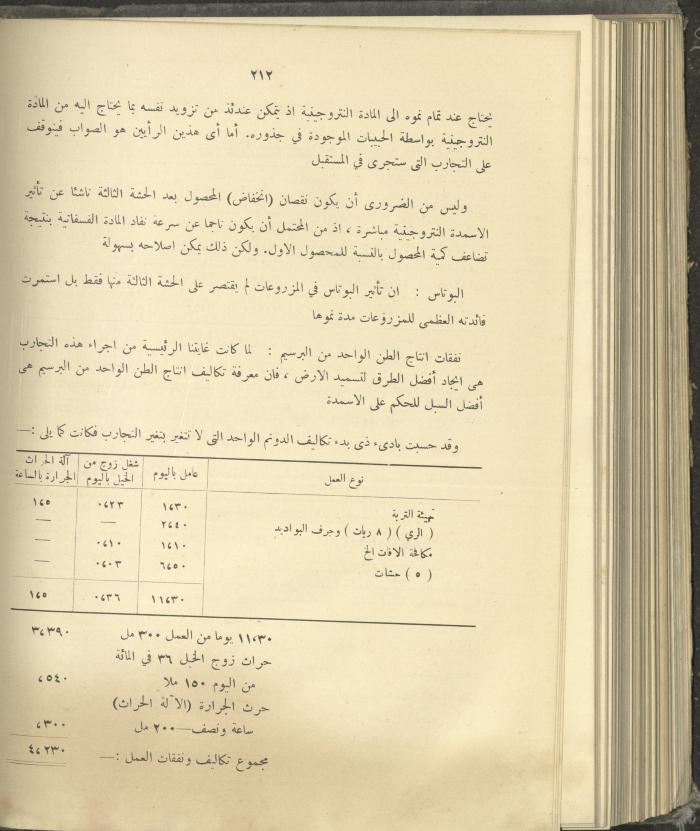 ٢١٢
يحتاج عند تمام نموه الى المادة النتروجينية اذ يتمكن عندئذ من تزويد نفسه بما يحتاج اليه من المادة
النتروجينية بواسطة الحبيبات الموجودة في جذوره. أما أى هذين الرأيين هو الصواب فيتوقف
على التجارب التى ستجرى في المستقبل
وليس من الضرورى أن يكون نقصان (انخفاض) المحصول بعد الحشة الثالثة ناشئا عن تأثير
الاسمدة النتروجينية مباشرة ، اذ من المحتمل أن يكون ناجما عن سرعة نفاد المادة الفسفاتية بنتيجة
تضاعف كمية المحصول بالنسبة للمحصول الاول. ولكن ذلك يمكن اصلاحه بسهولة
البوتاس : ان تأثير البوتاس في المزروعات لم يقتصر على الحشة الثالثة منها فقط بل استمرت
فائدته العظمى للمزروعات مدة نموها
نفقات انتاج الطن الواحد من البرسيم : لما كانت غايتنا الرئيسية من اجراء هذه التجارب
هى ايجاد أفضل الطرق لتسميد الارض ، فان معرفة تكاليف انتاج الطن الواحد من البرسيم هى
أفضل السبل للحكم على الاسمدة
وقد حسبت بادىء ذى بدء تكاليف الدونم الواحد التى لا تتغير بتغير التجارب فكانت كما يلى :—
نوع العمل عامل باليوم شغل زوج من الخيل باليوم آلة الحراث الجرارة بالساعة
تهيئة التربة ١٤٣٠ ٠٤٢٣ ١٤٥
( الري ) ( ٨ ريات ) وجرف البواديد ٢٤٤٠ — —
مكافحة الافات الخ ١٤١٠ ٠٤١٠ —
( ٥ ) حشات ٦٤٥٠ ٠٤٠٣ —
١١٤٣٠ ٠٤٣٦ ١٤٥
١١٤٣٠ يوما من العمل ٣٠٠ مل ٣٤٣٩٠
حراث زوج الخيل ٣٦ في المائة
من اليوم ١٥٠ ملا ٤٥٤٠
حرث الجرارة (الآلة الحراث)
ساعة ونصف—٢٠٠ مل ٤٣٠٠
مجموع تكاليف ونفقات العمل :— ٤٤٢٣٠